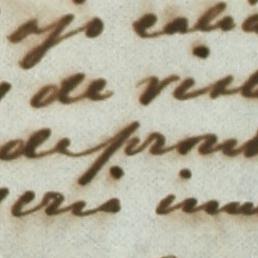 ojo calid
y de vist
de pront
geria inm